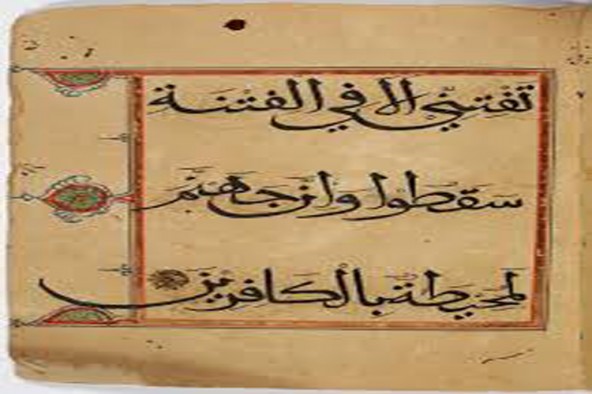 تفتني الا في الفتنة
سقطوا وان جهنم
لمحيطة بالكافرين